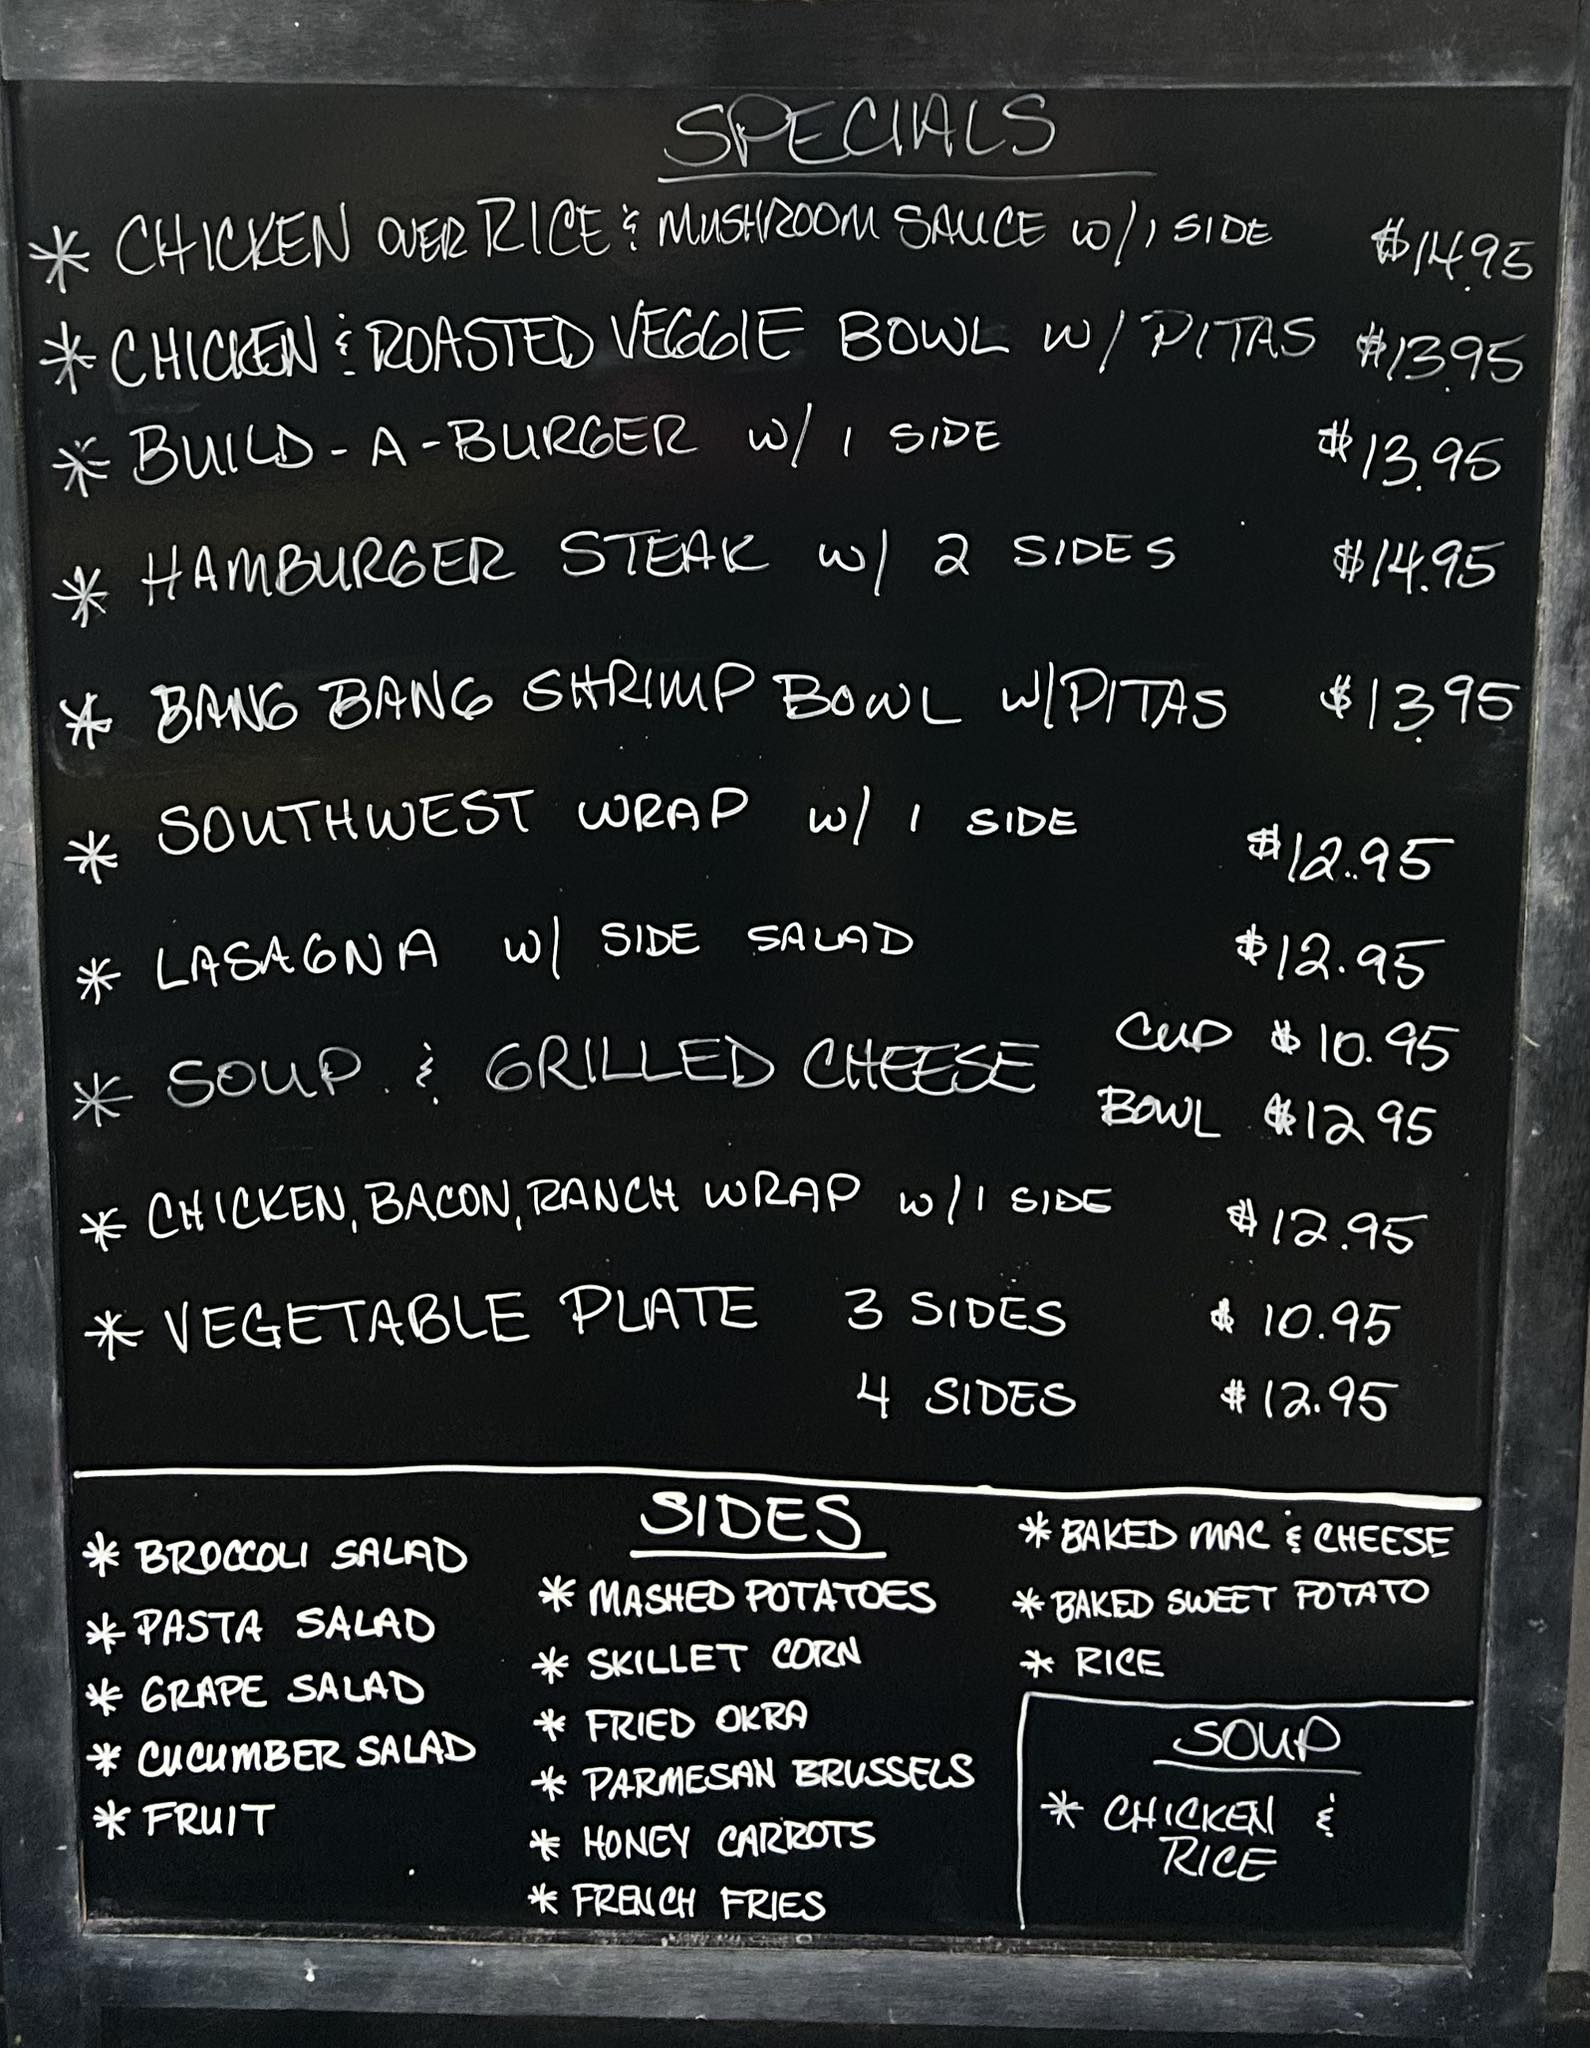 SPECIALS
* CHICKEN OVER RICE & MUSHROOM SAUCE W/ 1 SIDE $14.95
* CHICKEN & ROASTED VEGGIE BOWL W/ PITAS $13.95
* BUILD-A-BURGER W/ 1 SIDE $13.95
* HAMBURGER STEAK W/ 2 SIDES $14.95
* BANG BANG SHRIMP BOWL W/PITAS $13.95
* SOUTHWEST WRAP W/ 1 SIDE $12.95
* LASAGNA W/ SIDE SALAD $12.95
* SOUP & GRILLED CHEESE CUP $10.95
BOWL $12.95
* CHICKEN, BACON, RANCH WRAP W/ 1 SIDE $12.95
* VEGETABLE PLATE 3 SIDES $10.95
4 SIDES $12.95
SIDES
* BROCCOLI SALAD
* PASTA SALAD
* GRAPE SALAD
* CUCUMBER SALAD
* FRUIT
* MASHED POTATOES
* SKILLET CORN
* FRIED OKRA
* PARMESAN BRUSSELS
* HONEY CARROTS
* FRENCH FRIES
* BAKED MAC & CHEESE
* BAKED SWEET POTATO
* RICE
SOUP
* CHICKEN &
RICE